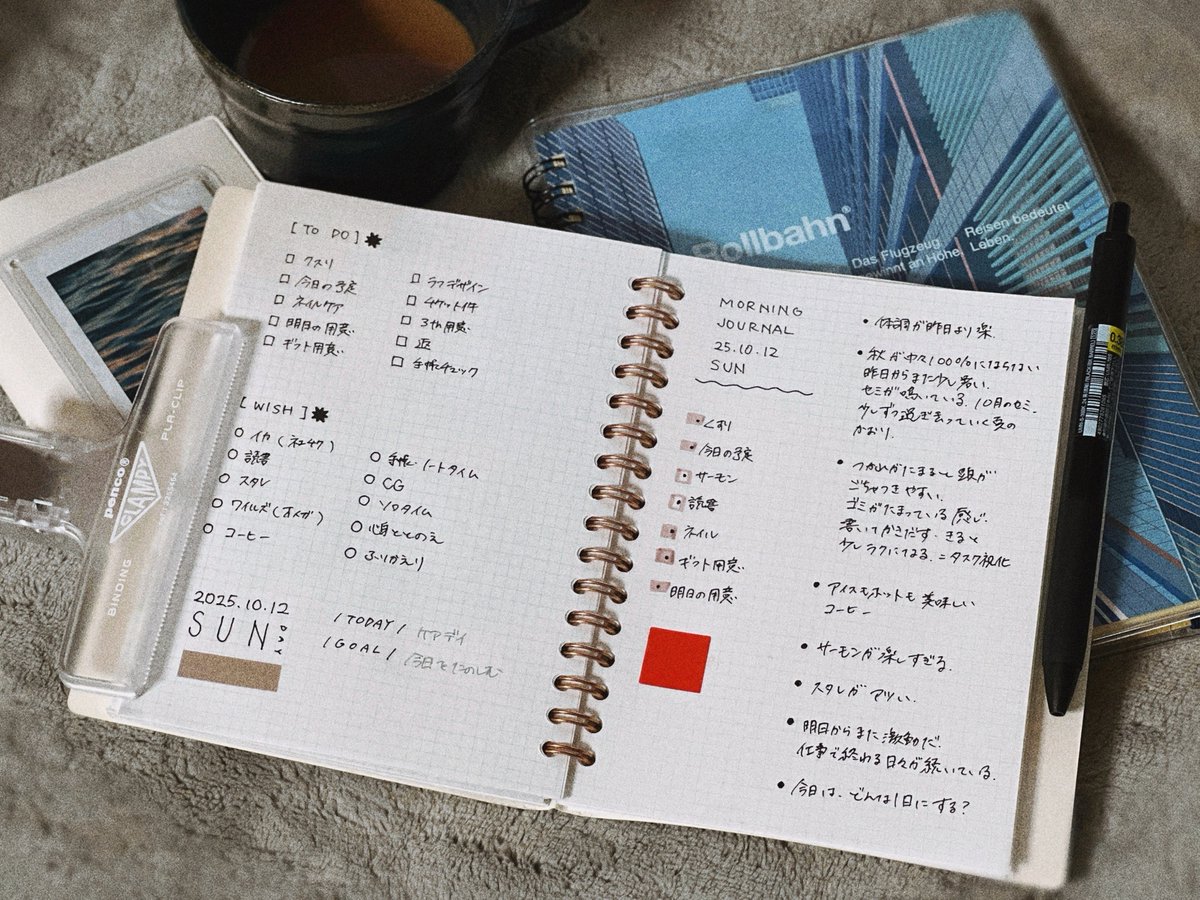 [TO DO]
クスリ
今日の予定
ネイルケア
明日の用意
ギフト用意
ラフデザイン
チケット
用意
手帳チェック
[WISH]
イカ(ネコチク)
読書
スタレ
ワイルズ(オメガ)
コーヒー
手帳・ノートタイム
CG
ソロタイム
心身ととのえ
ふりかえり
2025.10.12
SUN
DAY
/TODAY/ ケアデイ
/GOAL/ 今日をたのしむ
MORNING
JOURNAL
25.10.12
SUN
くすり
今日の予定
サーモン
読書
ネイル
ギフト用意
明日の用意
・体調が昨日より楽.
・秋がやや100%にはならない
昨日からまた少し暑い.
セミが鳴いている. 10月のセミ.
少しずつ過ぎ去っていく夏の
かおり.
・つかれがたまると頭が
ごちゃつきやすい.
ゴミがたまっている感じ.
書いてかきだす. きると
少しラクになる. =タスク視化
・アイスもホットも美味しい
コーヒー
・サーモンが楽しすぎる.
・スタレがアツい.
・明日からまた激動だ.
仕事で終わる日々が続いている.
・今日は、どんな1日にする?
Rollbahn®
Das Flugzeug
gewinnt an Höhe.
Reisen bedeutet
Leben.
penco®
CLAMPY
BINDING
PLR-CLIP
0.38